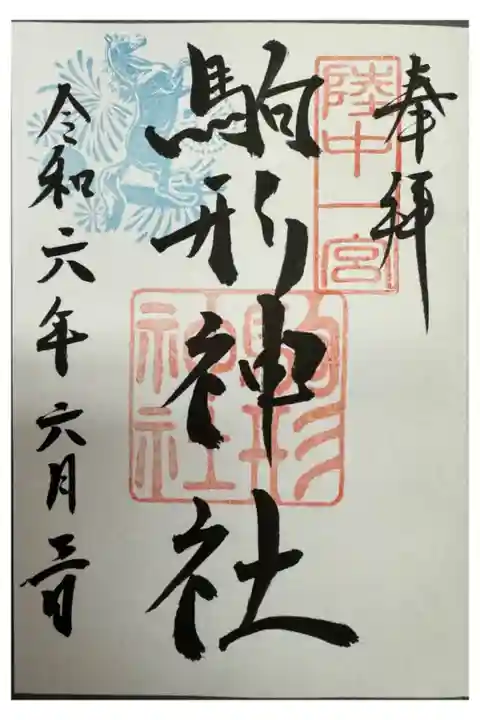 奉拝
陸中一宮
駒形神社
駒形
神社
令和六年六月三日